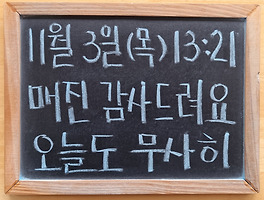 11월 3일(목) 13:21
매진 감사드려요
오늘도 무사히